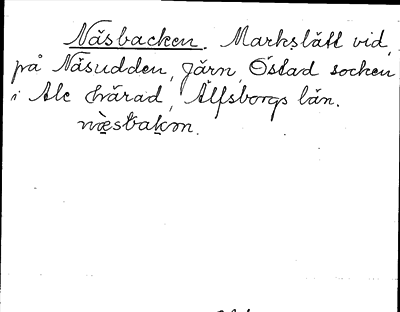 Näsbacken. Markslätt vid,
på Näsudden, Järn, Östad socken
i Ale härad, Älfsborgs län.
næsbakɒn.